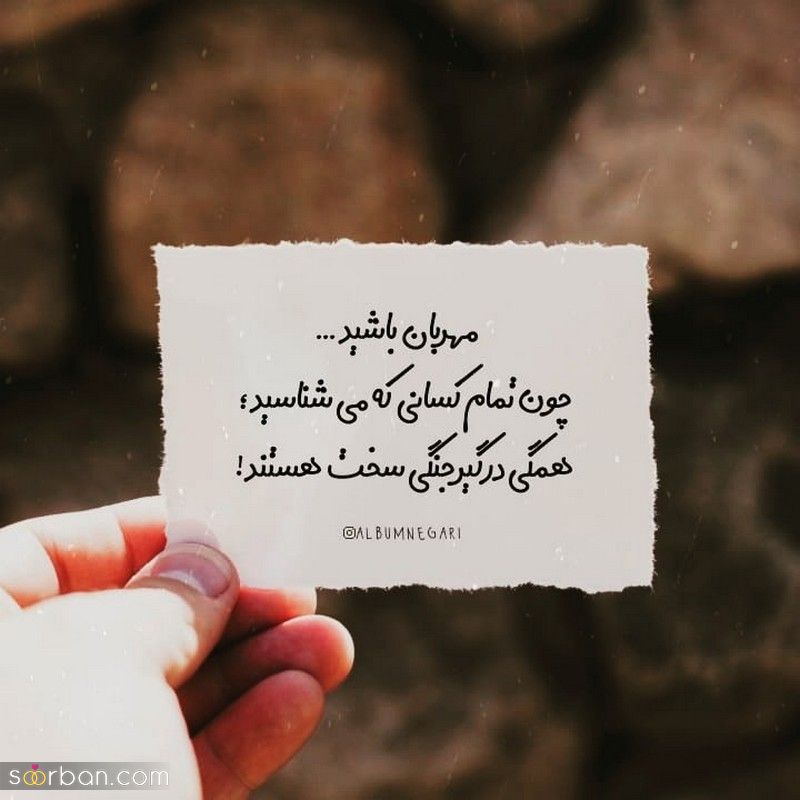 مهربان باشید...
چون تمام کسانی که می شناسید؛
همگی درگیر جنگی سخت هستند!
@ALBUMNEGARI
soorban.com